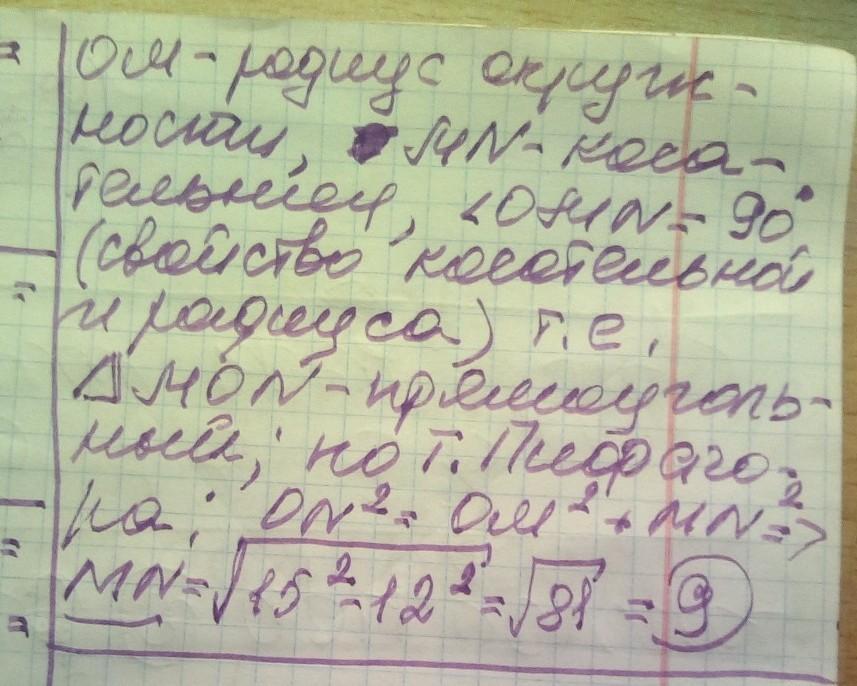 ОМ - радиус окруж-
ности, MN - каса-
тельная, <OMN = 90°
(свойство касательной
и радиуса) т.е.
Δ MON - прямоуголь-
ный; по т. Пифаго-
ра; ON² = OM² + MN² =>
MN = √15² - 12² = √81 = 9